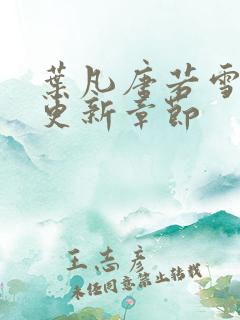 葉凡唐若雪
更新章節
王志彥
未经同意禁止转载